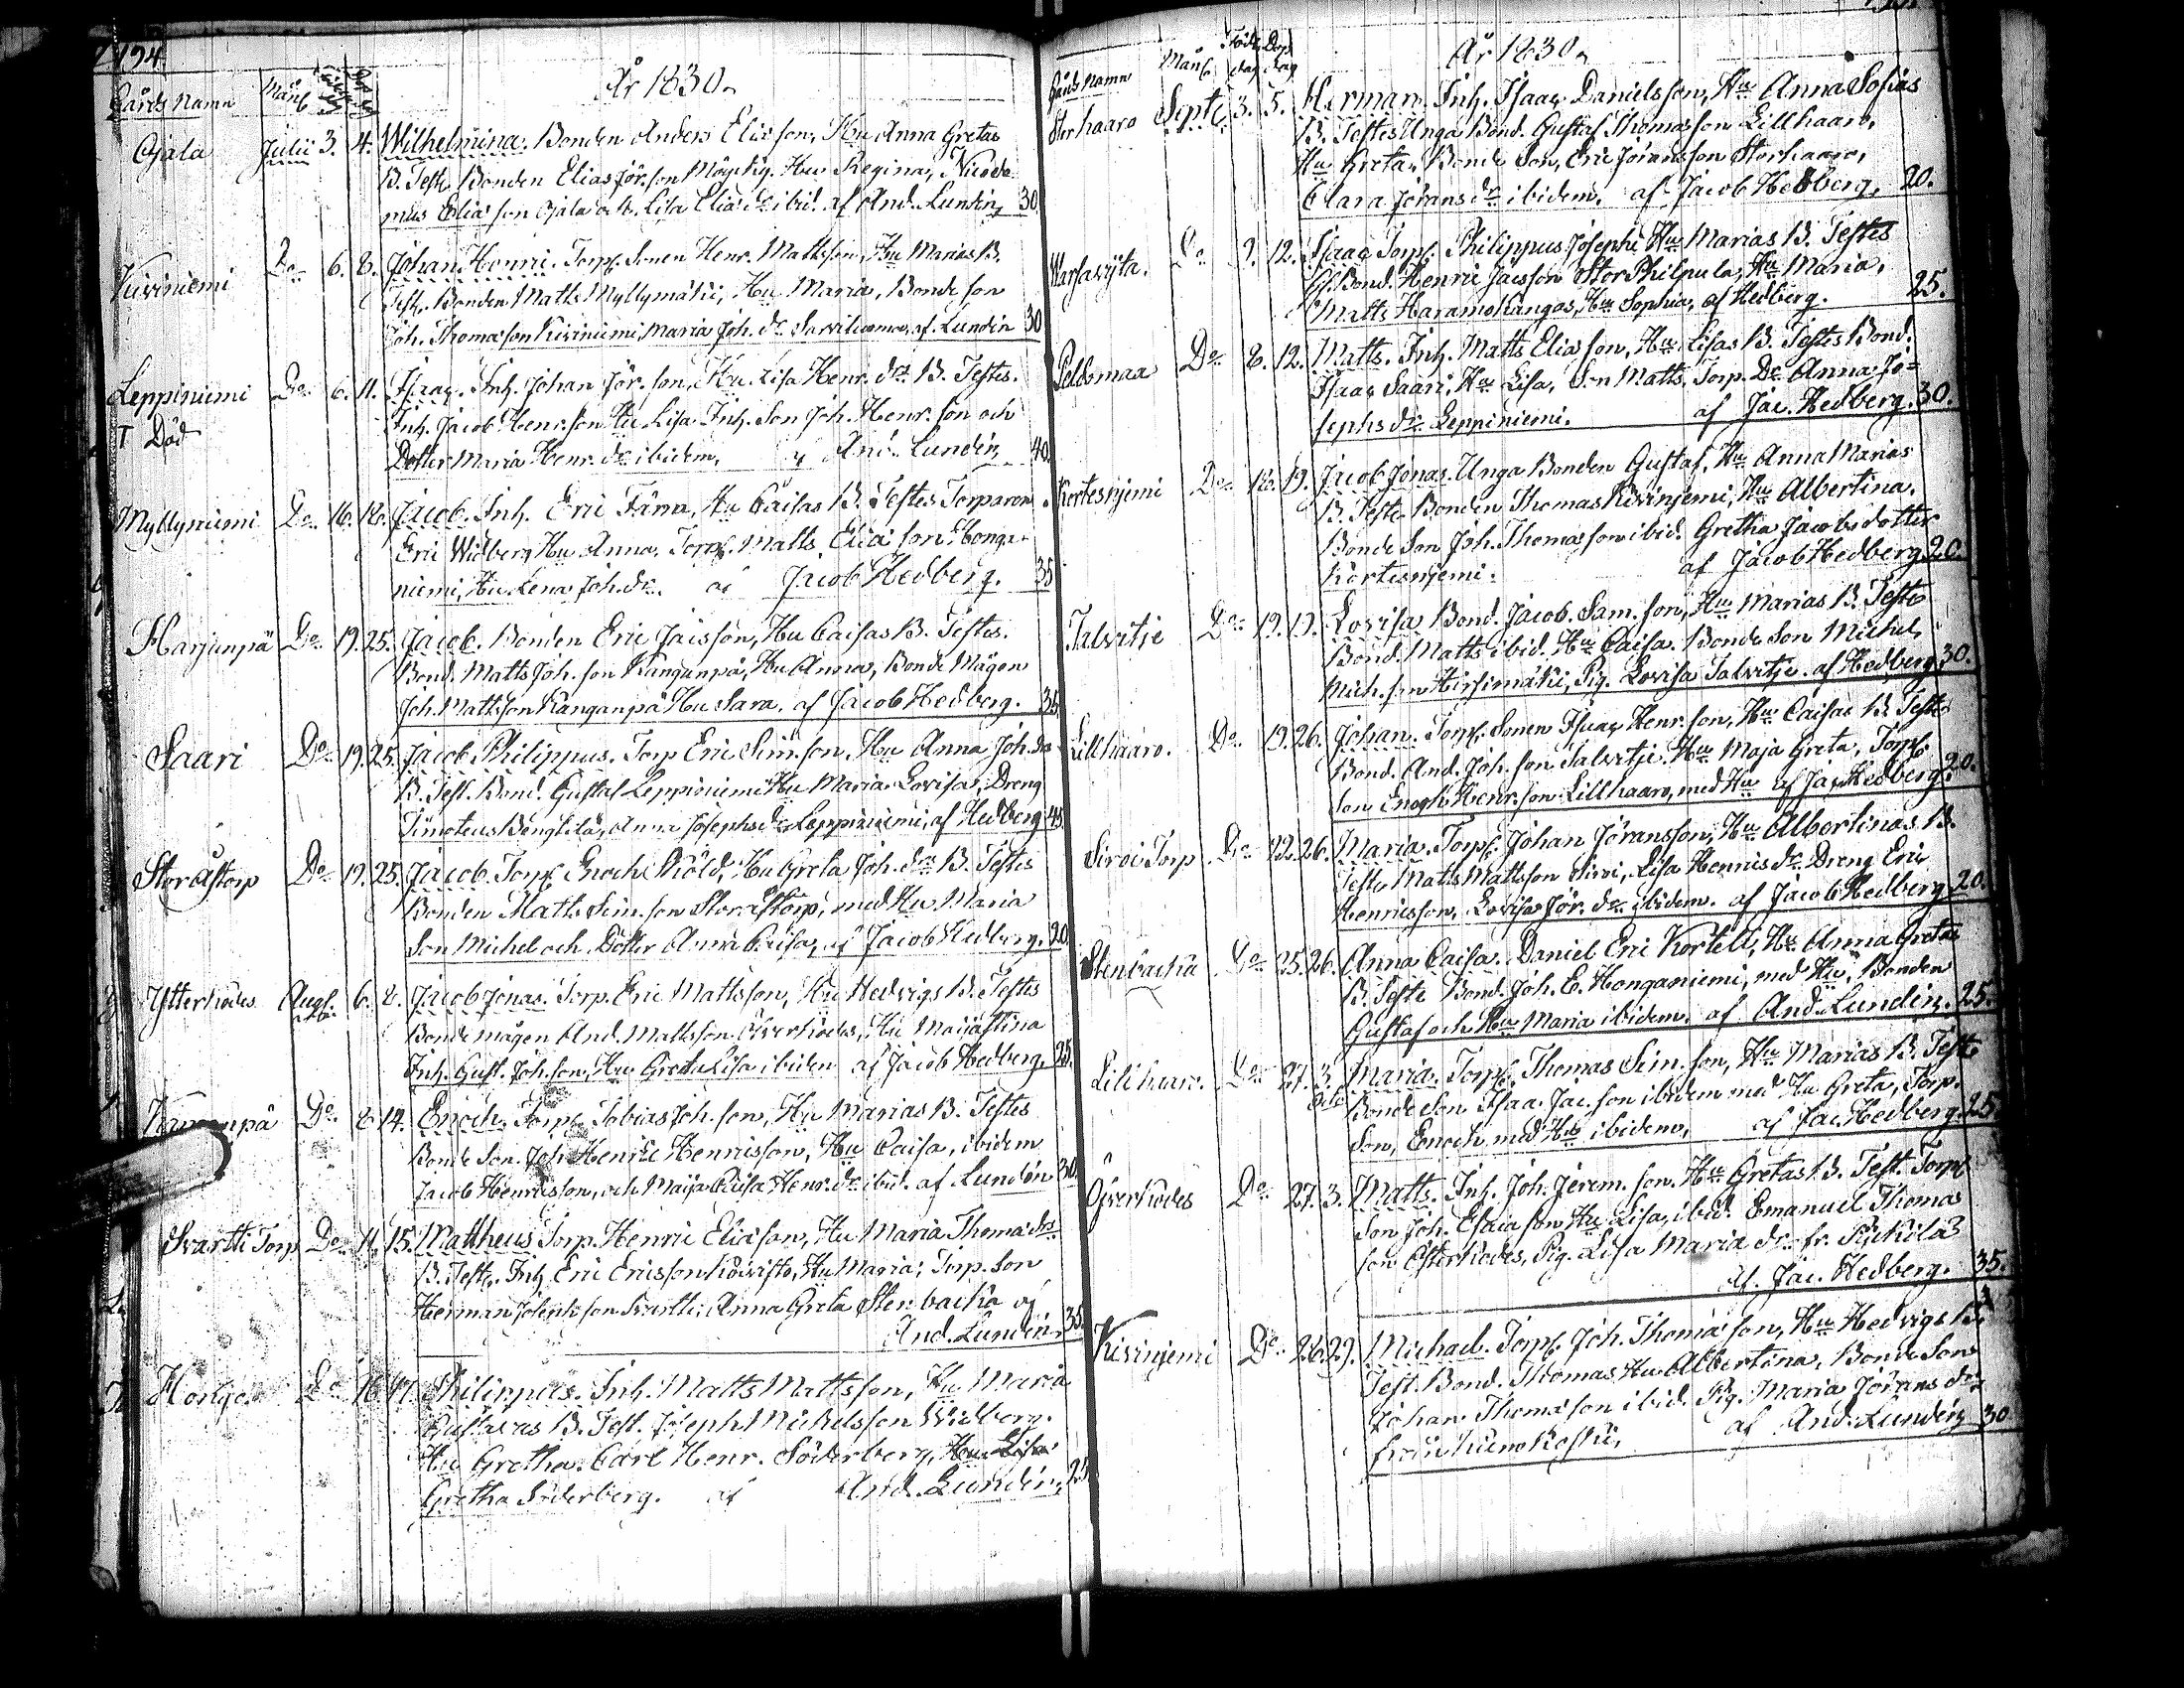 194
År 1830.
Gårds Namn Månd Födelse dag Dop dag
Ojala Julii 3. 4. Wilhelmina. Bonden Anders Eliæ son, Hu Anna Gretas
B. Teste Bonden Elias Jör. son Hu Regina, Nicode
mus Eliæ son Ojala och Lisa Eliæ dr ibid. af And. Lundin 30
Kiviniemi Do 6. 8. Johan Henric. Torp. Sonen Henr. Mattsson, Hu Marias B.
Test. Bonden Matts Myllymäki, Hu Maria, Bonde son
Joh. Thomæ son Kiviniemi, Maria Joh. dr af Lundin 30
Leppiniemi Do 6. 11. Isaac. Inh. Johan Jör. son, Hu Lisa Henr. drs B. Testes.
† Död Inh. Jacob Henr. son Hu Lisa Inh. Son Joh. Henr. son och
Dotter Maria Henr. dr ibidem, af And. Lundin 40.
Myllyniemi Do 16. 18. Jacob. Inh. Eric Fänn, Hu Caisas B. Testes Torparen
Eric Widberg Hu Anna, Torp. Matts Eliæ son Honga
niemi, Hu Lena Joh. dr. af Jacob Hedberg. 35
Harjunpä Do 19. 25. Jacob. Bonden Eric Jacsson, Hu Caisas B. Testes.
Bond. Matts Joh. son Kanganpä, Hu Anna, Bonde Mågen
Joh. Mattsson Kanganpä Hu Sara, af Jacob Hedberg. 35
Saari Do 19. 25. Jacob Philippus. Torp Eric Sim. son, Hu Anna Joh. drs
B. Test. Bond. Gustaf Leppiniemi Hu Maria Lovisa, Dreng
Timoteus Bengtilä, Anna Josephs dr Leppiniemi, af Hedberg 45
Storåstorp Do 19. 25. Jacob. Torp. Enoch Sköld, Hu Greta Joh. drs B. Testes
Bonden Matts Sim. son Storåstorp, med Hu Maria
Son Michel och Dotter Anna Caisa, af Jacob Hedberg. 20
Ytterkodes Augt. 6. 8. Jacob Jonas. Torp. Eric Mattsson, Hu Hedvigs B. Testes
Bondemågen And. Mattsson Öfverkodes, Hu Maja Stina
Inh. Gust. Joh. son, Hu Greta Lisa ibidem af Jacob Hedberg. 25.
Kanganpä Do 8. 14. Enoch. Torp. Tobias Joh. son, Hu Marias B. Testes
Bonde Son Joh. Henric Henricsson, Hu Caisa, ibidem
Jacob Henricsson, och Maja Caisa Henr. dr ibid. af Lundin 30.
Svartti Torp Do 11. 15. Mattheus Torp. Henric Eliæ son, Hu Maria Thomæ drs
B. Teste. Inh. Eric Ericsson Koivisto, Hu Maria, Torp. Son
Herman Joseph son Svartti, Anna Greta Stenbacka af
And. Lundin. 35.
Do 16. 17. Philippus. Inh. Matts Mattsson, Hu Maria
Gustavas B. Test. Joseph Michelsson Widberg.
Hu Gretha. Carl Henr. Söderberg, Hu Lisa
Gretha Söderberg. af And. Lundin, 25
År 1830.
Gårds Namn Månd Föd. dag Dop dag
Storhaaro Septb 3. 5. Herman. Inh. Isaac Danielsson, Hu Anna Sofias
B. Testes Unga Bond. Gustaf Thomæsson Lillhaaro,
Hu Greta, Bonde Son, Eric Jöransson Storhaaro,
Clara Jörans dr ibidem. af Jacob Hedberg. 20.
Do 9. 12. Isaac Torp. Philippus Josephi Hu Marias B. Testes
Gl. Bond. Henric Jacsson Stor Philpula, Hu Maria,
Matts Haramokangas, Hu Sophia, af Hedberg. 25.
Peldomaa Do 8. 12. Matts. Inh. Matts Eliæ son, Hu Lisas B. Testes Bond.
Isaac Saari, Hu Lisa, Son Matts, Torp. Dr Anna Jo=
sephs dr Leppiniemi. af Jac. Hedberg. 30.
Kortesnjemi Do 18. 19. Jacob Jonas. Unga Bonden Gustaf, Hu Anna Marias
B. Teste Bonden Thomas Kivinjemi, Hu Albertina.
Bonde Son Joh. Thomæsson ibid. Gretha Jacobsdotter
Kortesnjemi. af Jacob Hedberg 20.
Talvitje Do 19. 19. Lovisa Bond. Jacob Sam. son, Hu Marias B. Teste
Bond. Matts ibid. Hu Caisa. Bonde Son Michel
Mich. son Hirsimäki, Pig. Lovisa Talvitje. af Hedberg. 30.
Lillhaaro. Do 19. 26. Johan. Torp. Sonen Isaac Henr. son, Hu Caisas B. Teste
Bond. And. Joh. son Talvitje Hu Maja Greta, Torp.
Son Enoch Henr. son Lillhaaro, med Hu af Jac. Hedberg 20.
Siroi Torp Do 22. 26. Maria. Torp. Johan Jöransson, Hu Albertinas B.
Teste Matts Mattsson Siroi, Lisa Henrics dr Dreng Eric
Henricsson, Lovisa Jör. dr ibidem. af Jacob Hedberg 20.
Stenbacka Do 25. 26. Anna Caisa. Daniel Eric Kortell, Hu Anna Gretas
B. Teste Bond. Joh. E. Honganiemi, med Hu, Bonden
Gustaf och Hu Maria ibidem. af And. Lundin. 25.
Lillhaar. Do 27. 3. Octb Maria. Torp. Thomas Sim. son, Hu Marias B. Teste
Bonde Son Isaac Jac. son ibidem med Hu Greta, Torp.
Son, Enoch med Hu ibidem, af Jac. Hedberg. 25.
Öfverkodes Do 27. 3. Matts. Inh. Joh. Jerem. son, Hu Gretas B. Test. Torp.
Son Joh. Esaiæ son Hu Lisa, ibid. Emanuel Thomæ
son Österkodes, Pig. Lisa Maria dr fr.
af. Jac. Hedberg. 35.
Kivinjemi Do 26. 29. Michael. Torp. Joh. Thomæ son, Hu Hedvigs B.
Test. Bond. Thomas Hu Albertina, Bonde Son
Johan Thomæ son ibid. Pig. Maria Jörans dr
från af And. Lundin 30